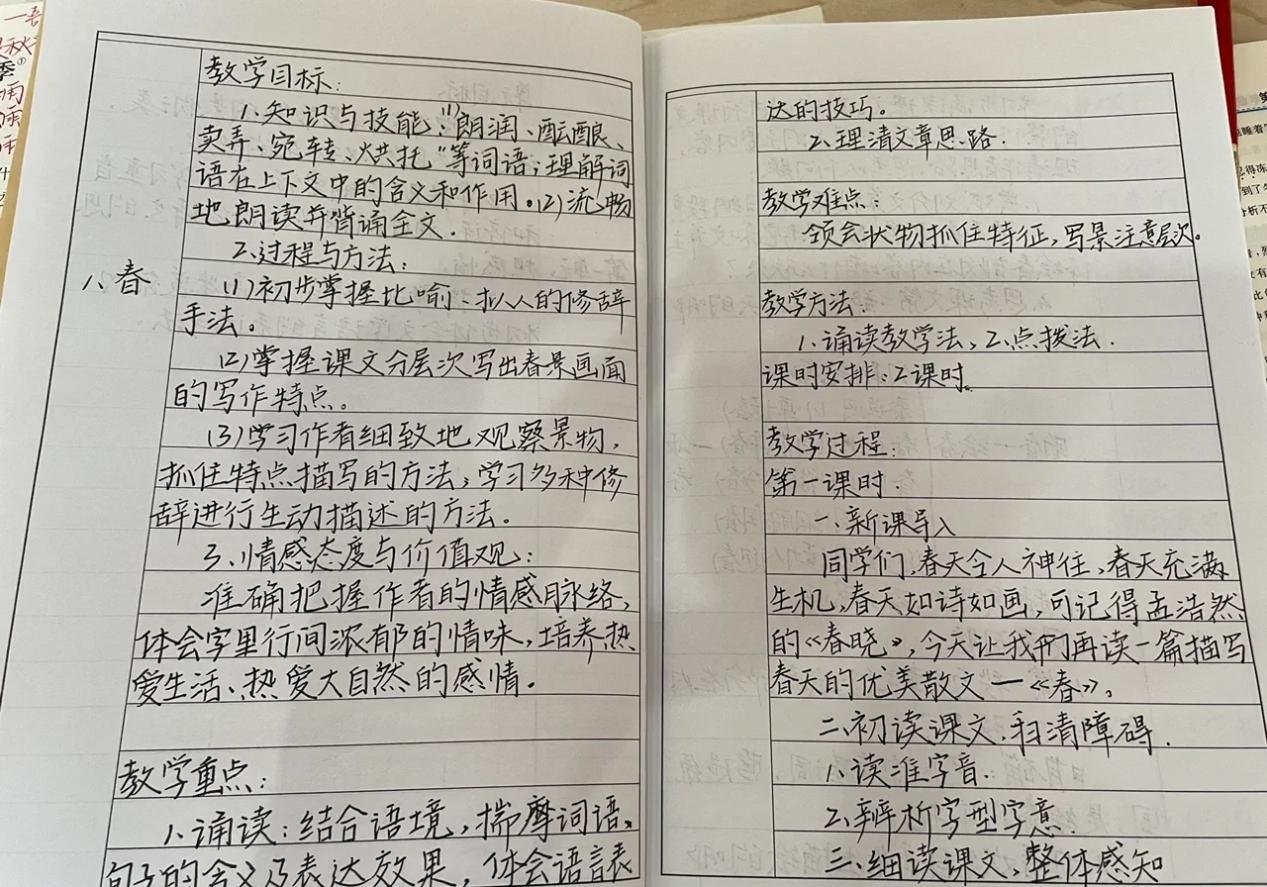 1、春
教学目标：
1、知识与技能：(1)“朗润、酝酿、
卖弄、宛转、烘托”等词语；理解词
语在上下文中的含义和作用。(2)流畅
地朗读并背诵全文.
2、过程与方法：
(1)初步掌握比喻、拟人的修辞
手法。
(2)掌握课文分层次写出春景画面
的写作特点。
(3)学习作者细致地观察景物，
抓住特点描写的方法；学习多种修
辞进行生动描述的方法。
3、情感态度与价值观：
准确把握作者的情感脉络，
体会字里行间浓郁的情味，培养热
爱生活、热爱大自然的感情.
教学重点：
1、诵读：结合语境，揣摩词语、
句子的含义及表达效果，体会语言表
达的技巧。
2、理清文章思路.
教学难点：
领会状物抓住特征，写景注意层次。
教学方法：
1、诵读教学法、2、点拨法.
课时安排：2课时。
教学过程：
第一课时.
一、新课导入
同学们，春天令人神往，春天充满
生机，春天如诗如画，可记得孟浩然
的《春晓》，今天让我们再读一篇描写
春天的优美散文—《春》。
二、初读课文，扫清障碍.
1、读准字音.
2、辨析字型字意.
三、细读课文，整体感知